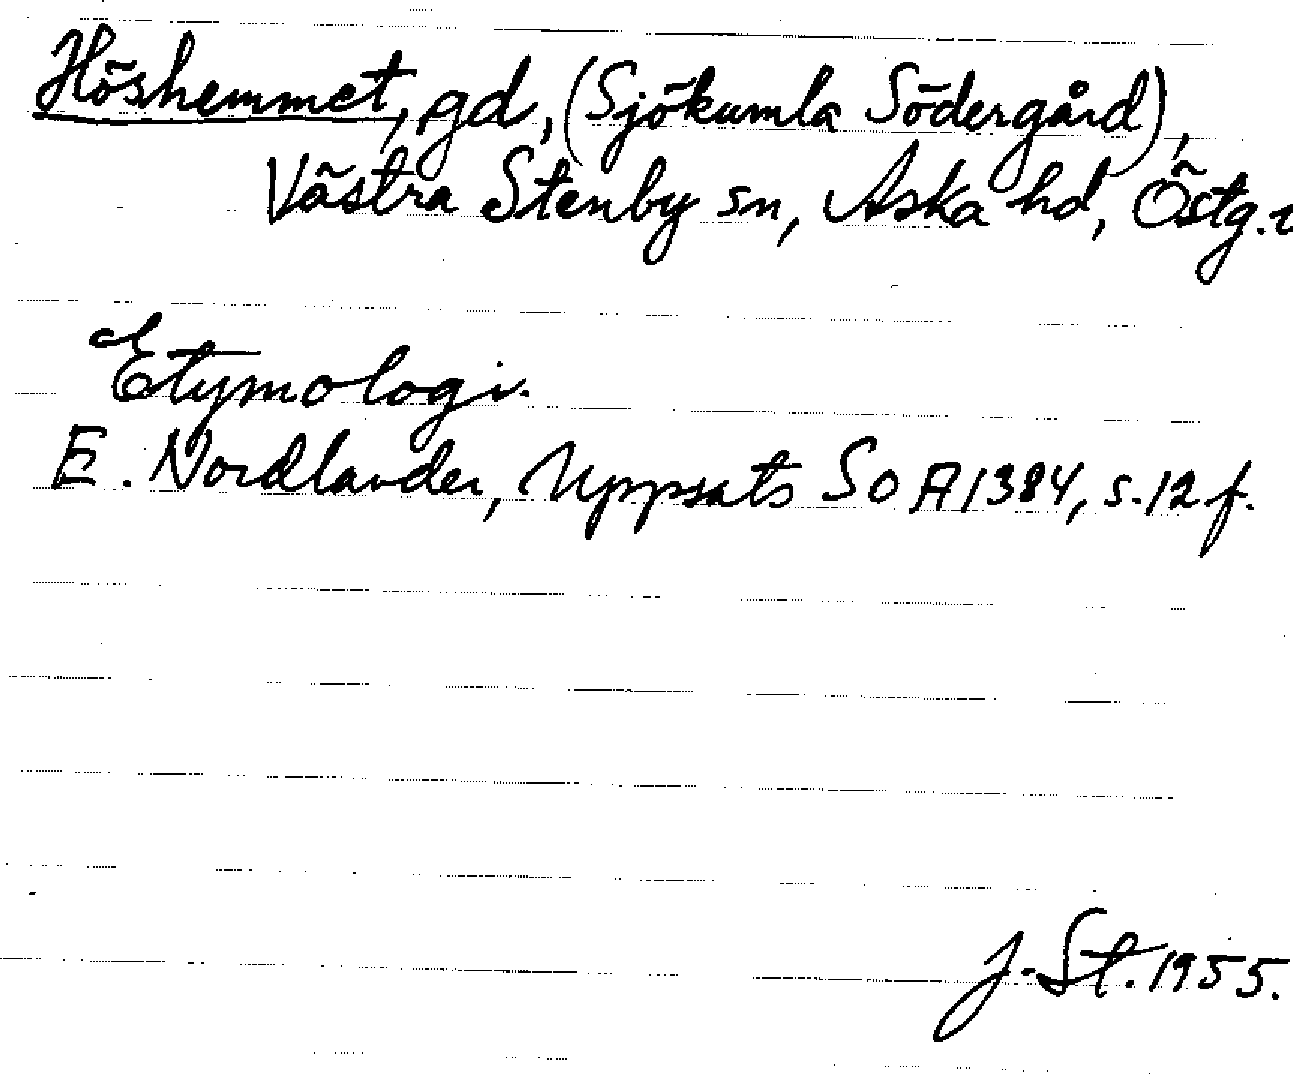 Höshemmet, gd, (Sjökumla Södergård),
Västra Stenby sn, Aska hd, Östg.
Etymologi.
E. Nordlander, Uppsats SOA 1384, s. 12 f.
J. St. 1955.